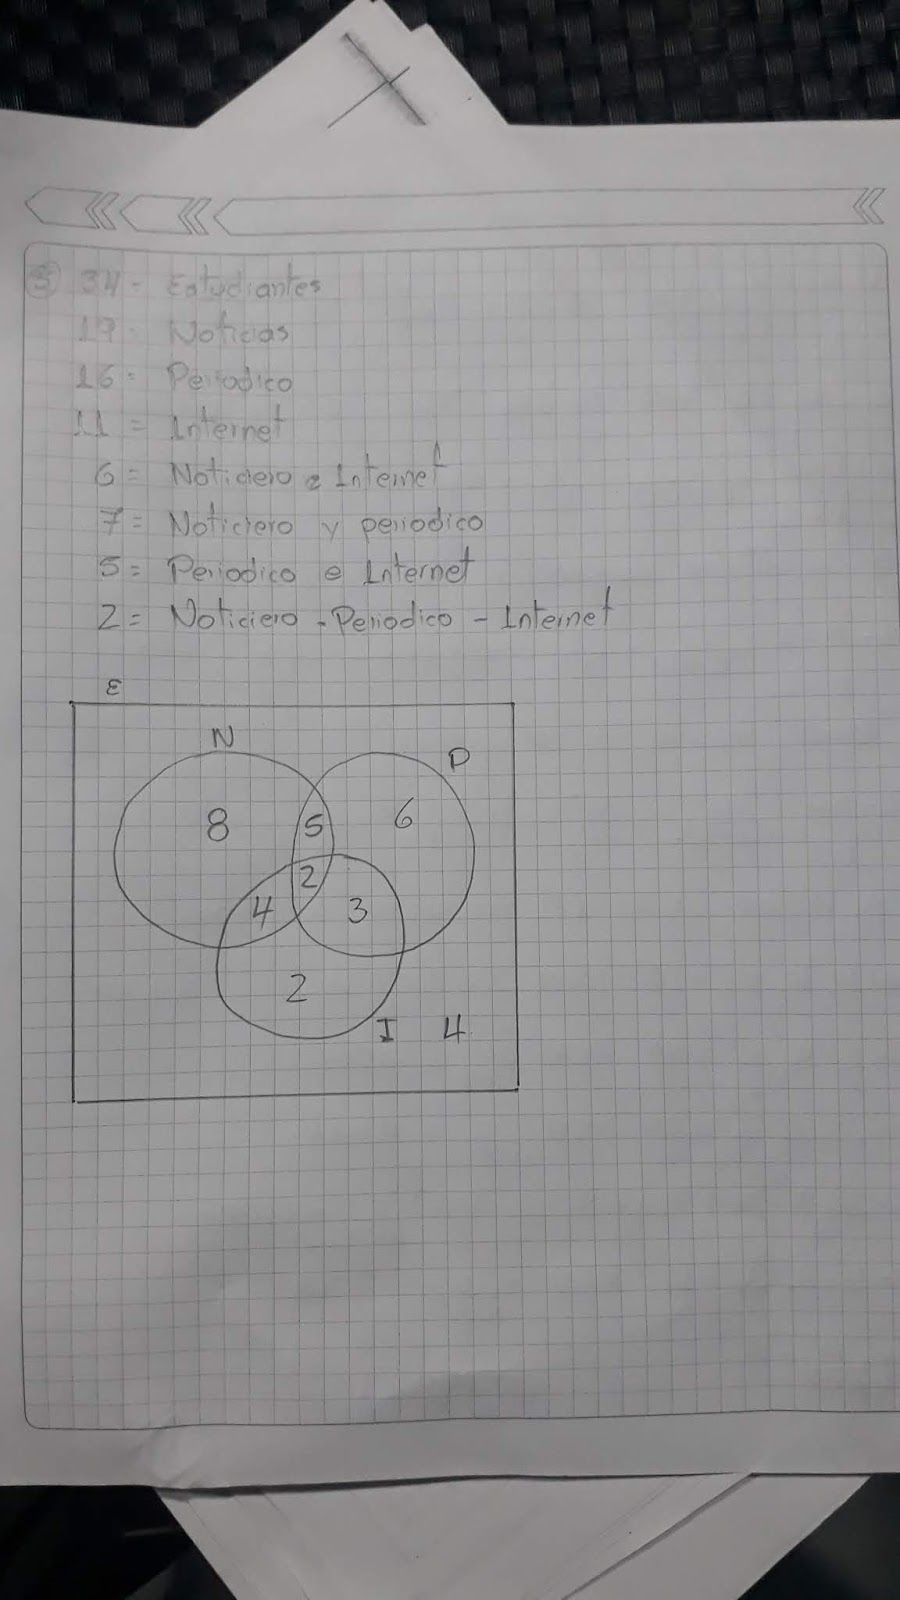 3 34 = Estudiantes
19 = Noticias
16 = Periodico
11 = Internet
6 = Noticiero e Internet
7 = Noticiero y periodico
5 = Periodico e Internet
2 = Noticiero - Periodico - Internet
E
N
P
8 5 6
2
4 3
2
I 4